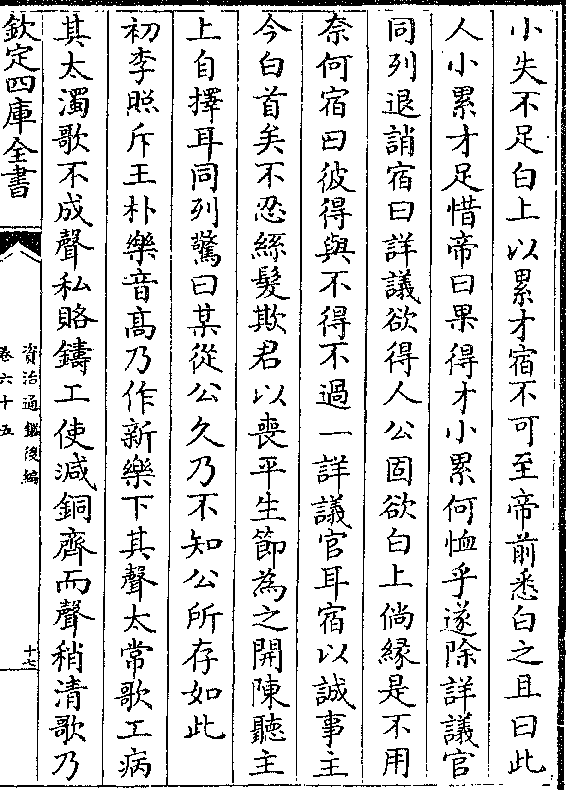 小失不足白上以累才宿不可至帝前悉白之且曰此
人小累才足惜帝曰果得才小累何恤乎遂除詳議官
同列退誚宿曰詳議欲得人公固欲白上倘縁是不用
奈何宿曰彼得與不得不過一詳議官耳宿以誠事主
今白首矣不忍絲髮欺君以喪平生節為之開陳聽主
上自擇耳同列驚曰某從公久乃不知公所存如此
初李照斥王朴樂音髙乃作新樂下其聲太常歌工病
其太濁歌不成聲私賂鑄工使減銅齊而聲稍清歌乃
欽定四庫全書
資治通鑑後編
卷六十五
十七